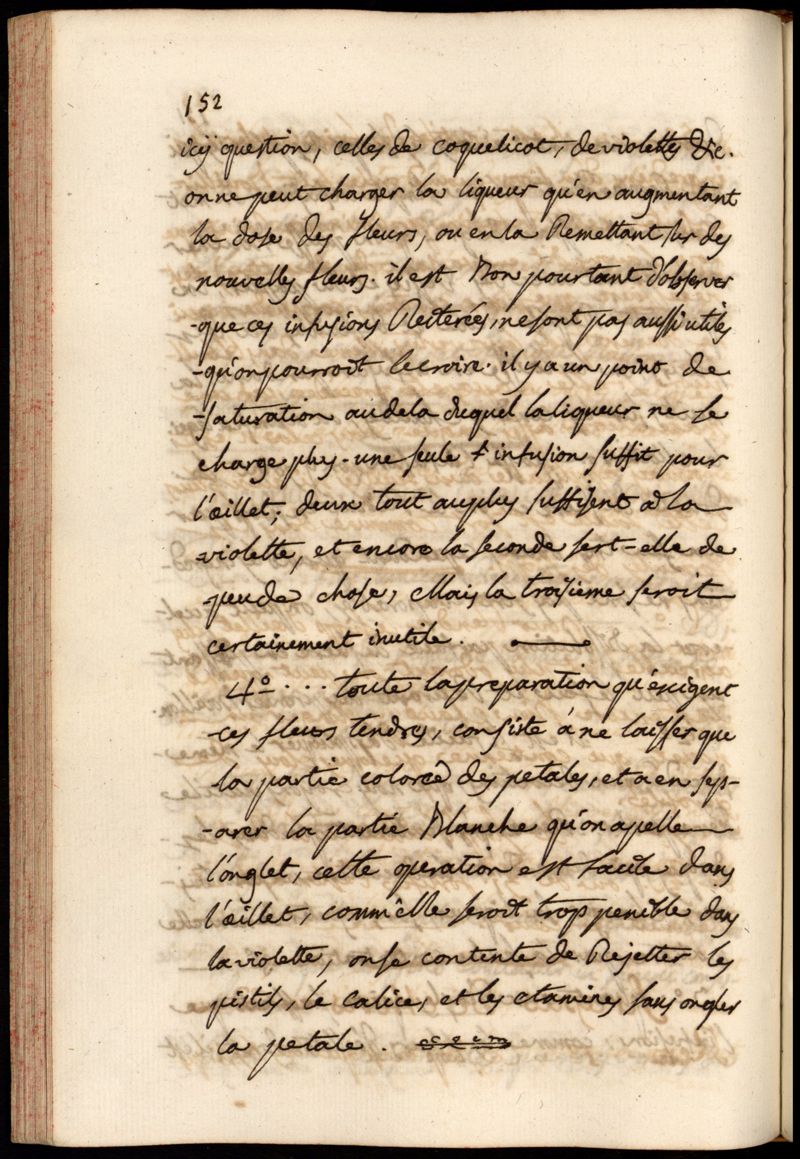 152
icÿ question, celles de coquelicot, de violettes &c.
on ne peut charger la liqueur qu'en augmentant
la dose des fleurs, ou en la Remettant sur des
nouvelles fleurs. il est Bon pourtant d'observer
-que ces infusions Reiterées, ne sont pas aussi utiles
-qu'on pourroit le croire. il y a un point de
-saturation audela duquel la liqueur ne se
charge plus - une seule infusion suffit pour
l'œillet; deux tout auplus suffisent a la
violette, et encore la seconde sert-elle de
peu de chose, Mais la troisieme seroit
certainement inutile.
4º... toute la preparation qu'exigent
-ces fleurs tendres, consiste à ne laisser que
la partie coloreé des petales, et a en sep-
-arer la partie Blanche qu'on apelle
l'onglet, cette operation est facile dans
l'œillet, comm'elle seroit trop penible dans
la violette, on se contente de Rejetter les
pistils, le calice, et les etamines sans ongler
la petale.